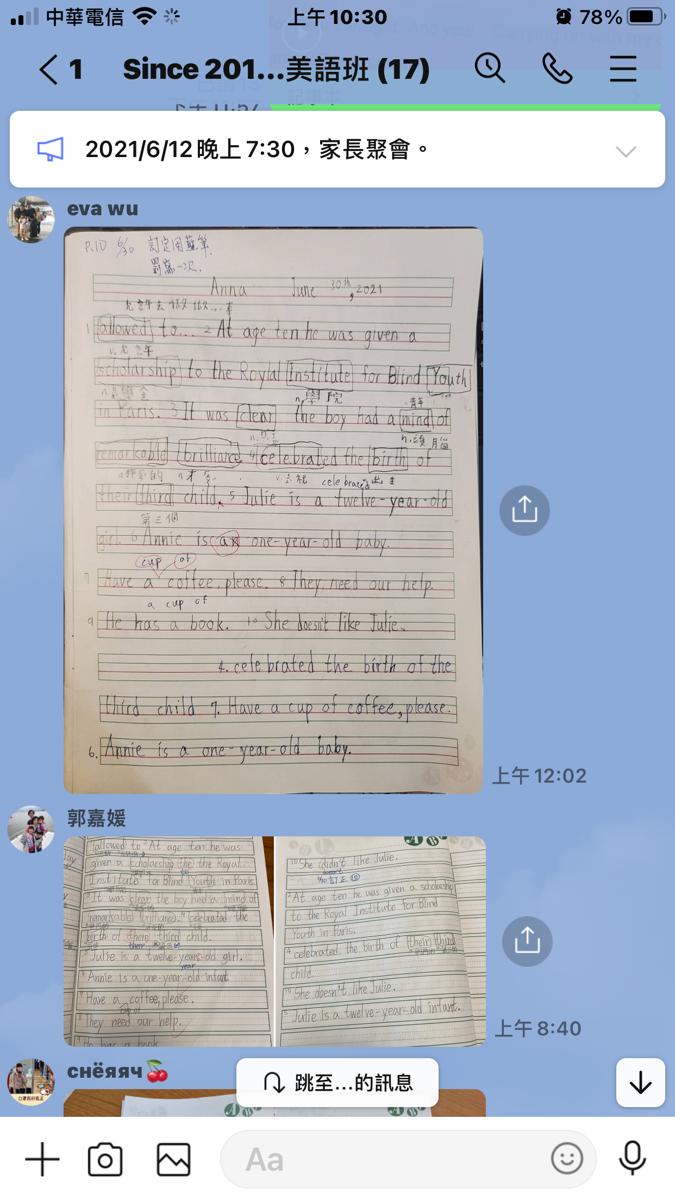 中華電信
上午10:30
78%
1
Since 201...美語班 (17)
2021/6/12晚上7:30，家長聚會。
eva wu
P.10 6/30 訂正用藍筆
罰寫一次.
Anna June 30th, 2021
1 allowed to... 2 At age ten he was given a
scholarship to the Roylal Institute for Blind Youth
n.獎學金 n.學院 n.青年
in Paris. 3 It was clear the boy had a mind of
n.頭腦
remarkable brilliance. 4 celebrated the birth of
celebrated
their third child. 5 Julie is a twelve-year-old
第三個
girl. 6 Annie is an one-year-old baby.
cup of
7 Have a coffee, please. 8 They need our help.
a cup of
9 He has a book. 10 She doesn't like Julie.
4. celebrated the birth of the
third child 7. Have a cup of coffee, please.
6. Annie is a one-year-old baby.
上午12:02
郭嘉媛
allowed to 2 At age ten he was
given a scholarship the the Royal
Institute for Blind Youth in Paris
3 It was clear the boy had a mind of
remarkable brilliance. 4 celebrated the
birth of there third child.
their
5 Julie is a twelve-years-old girl.
year
6 Annie is a one-year-old infant
7 Have a coffee, please.
8 They need our help.
9 He has a book
10 She didn't like Julie.
doesn't
訂正
2 At age ten he was given a scholarship
to the Royal Institute for Blind
Youth in Paris.
4 celebrated the birth of their third
child.
10 She doesn't like Julie.
5 Julie is a twelve-year-old infant.
上午8:40
снёяяч
跳至...的訊息
Aa